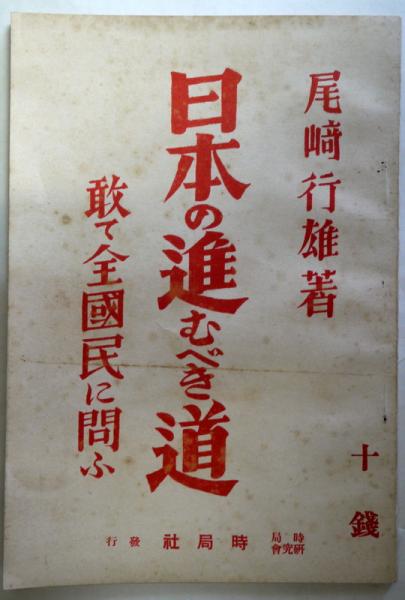 尾﨑行雄著
日本の進むべき道
敢て全國民に問ふ
十錢
時局研究會 時局社 發行